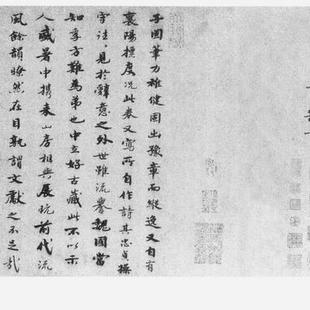 子固筆力雅健固出豫章而縱逸又自有
襄陽標度況此卷又寫所自作詩其忠貞操
守往〻見於辭意之外世雖流譽魏國當
知季方難為弟也中立好古藏此不以示
人盛暑中攜來山房相與展玩前代流
風餘韻瞭然在目孰謂文獻之不足哉